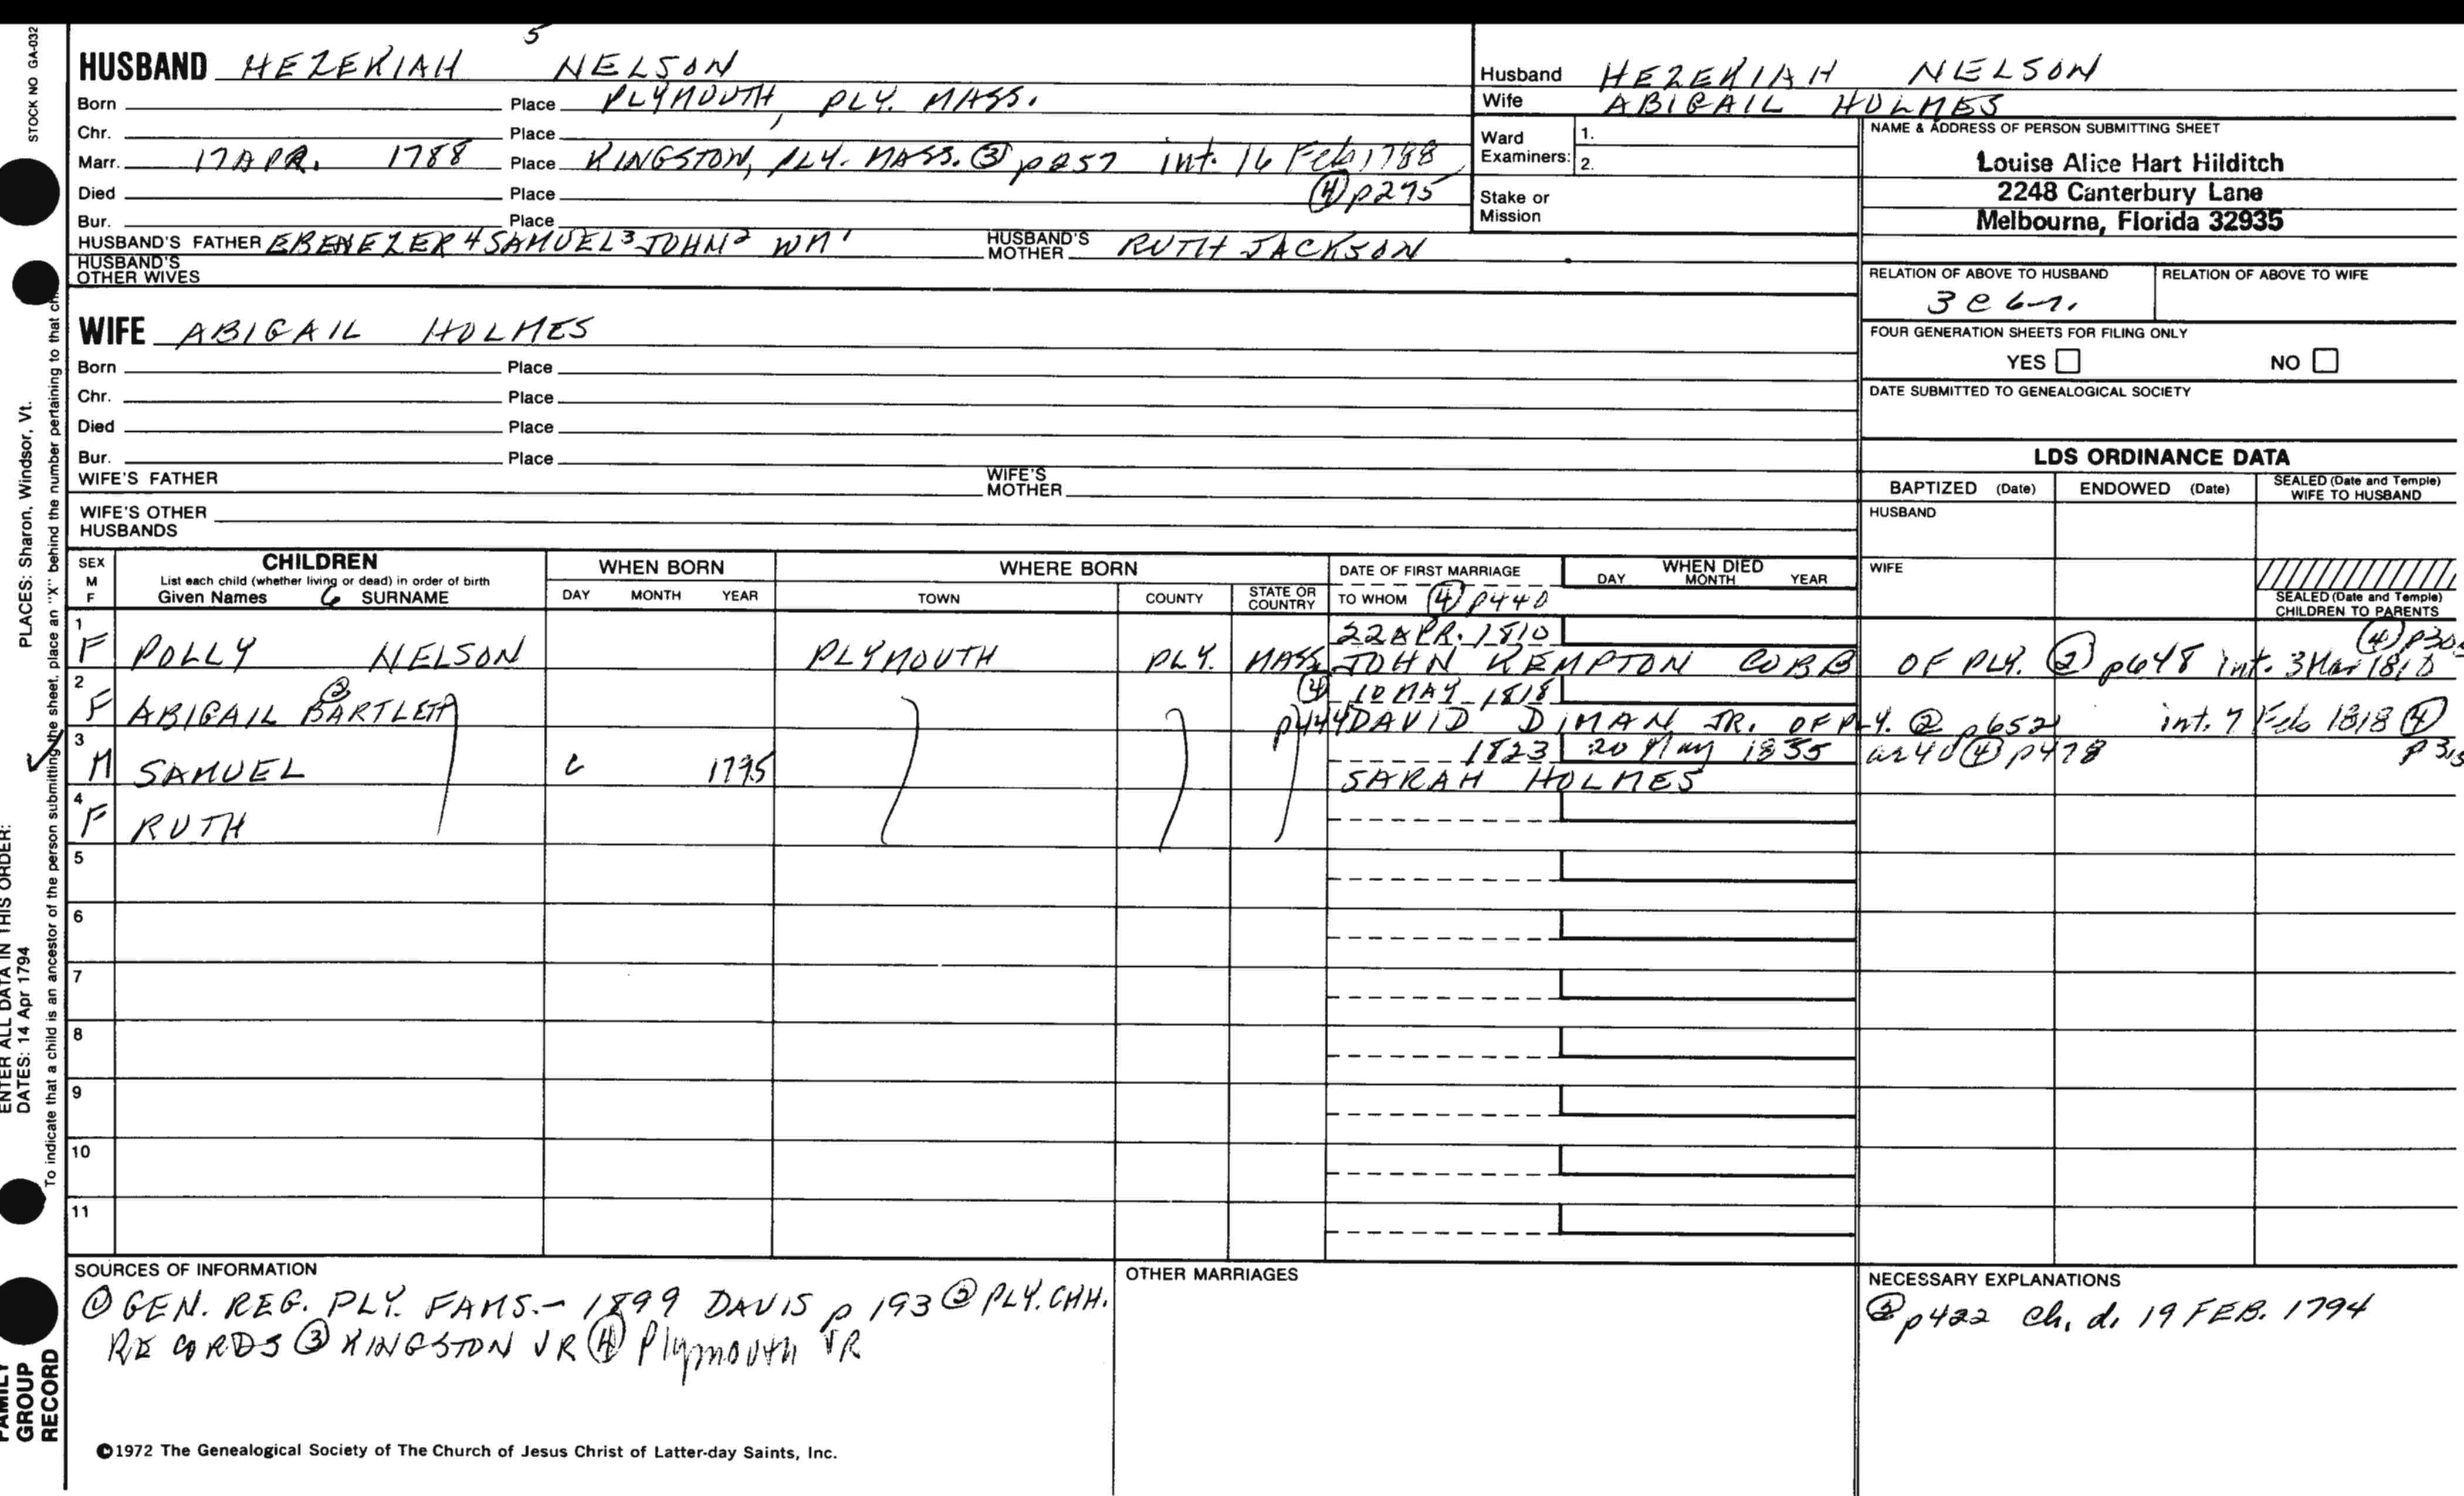 STOCK NO GA-032
5
HUSBAND HEZEKIAH NELSON
Born Place PLYMOUTH, PLY. MASS.
Chr. Place
Marr. 17 APR. 1788 Place KINGSTON, PLY. MASS. ③ p257 int. 16 Feb 1788
Died Place ④ p275
Bur. Place
HUSBAND'S FATHER EBENEZER 4 SAMUEL 3 JOHN 2 WM 1 HUSBAND'S MOTHER RUTH JACKSON
HUSBAND'S OTHER WIVES
WIFE ABIGAIL HOLMES
Born Place
Chr. Place
Died Place
Bur. Place
WIFE'S FATHER WIFE'S MOTHER
WIFE'S OTHER HUSBANDS
Husband HEZEKIAH NELSON
Wife ABIGAIL HOLMES
Ward Examiners: 1.
2.
Stake or Mission
NAME & ADDRESS OF PERSON SUBMITTING SHEET
Louise Alice Hart Hilditch
2248 Canterbury Lane
Melbourne, Florida 32935
RELATION OF ABOVE TO HUSBAND RELATION OF ABOVE TO WIFE
FOUR GENERATION SHEETS FOR FILING ONLY
YES NO
DATE SUBMITTED TO GENEALOGICAL SOCIETY
LDS ORDINANCE DATA
BAPTIZED (Date) ENDOWED (Date) SEALED (Date and Temple) WIFE TO HUSBAND
HUSBAND
WIFE
SEALED (Date and Temple) CHILDREN TO PARENTS
SEX M F
CHILDREN
List each child (whether living or dead) in order of birth
Given Names 6 SURNAME
WHEN BORN
DAY MONTH YEAR
WHERE BORN
TOWN COUNTY STATE OR COUNTRY
DATE OF FIRST MARRIAGE
TO WHOM ④ p440
WHEN DIED
DAY MONTH YEAR
1 22 APR. 1810 ④
F POLLY NELSON PLYMOUTH PLY. MASS. JOHN KEMPTON COBB OF PLY. ② p648 int. 3 Mar 1810
2 ② ④ 10 MAY 1818
F ABIGAIL BARTLETT p444 DAVID DIMAN JR. OF PLY. ② p652 int. 7 Feb 1818 ④
3 1823 20 May 1835 ae 40 ④ p478
M SAMUEL c 1795 SARAH HOLMES
4
F RUTH
5
6
7
8
9
10
11
SOURCES OF INFORMATION
① GEN. REG. PLY. FAMS. - 1899 DAVIS p 193 ② PLY. CHH.
RECORDS ③ KINGSTON VR ④ Plymouth VR
OTHER MARRIAGES
NECESSARY EXPLANATIONS
② p422 ch. d. 19 FEB. 1794
©1972 The Genealogical Society of The Church of Jesus Christ of Latter-day Saints, Inc.
ENTER ALL DATA IN THIS ORDER:
DATES: 14 Apr 1794
PLACES: Sharon, Windsor, Vt.
To indicate that a child is an ancestor of the person submitting the sheet, place an "X" behind the number pertaining to that
FAMILY GROUP RECORD